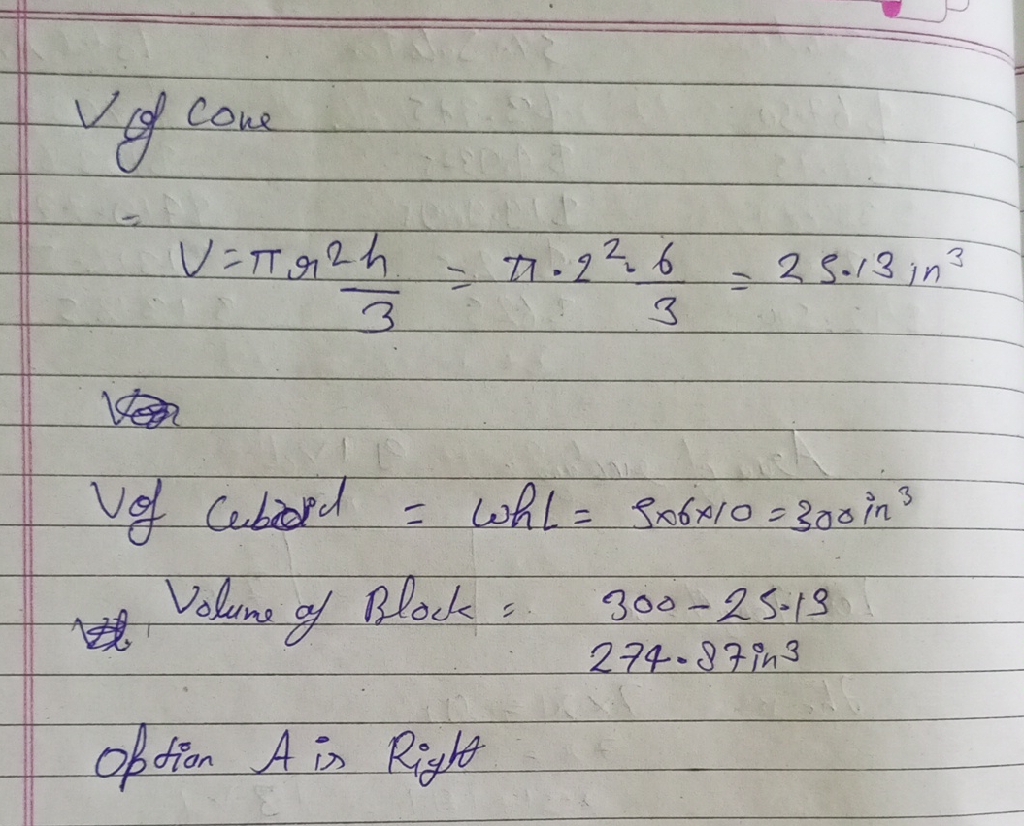 V of Cone
=
V = πr2h/3 = π.2². 6/3 = 25.13 in³
V of Cuboid = whL = 5x6x10 = 300 in³
Volume of Block = 300 - 25.13
274.87in3
Option A is Right